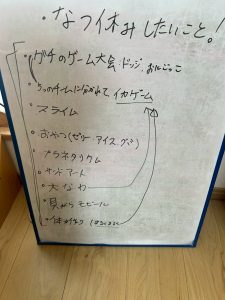 ・なつ休みしたいこと!
・ガチのゲーム大会・ドッジ、おにごっこ
・5つのチームに分かれて、イカゲーム
・スライム
・おやつ(ゼリー・アイス・グミ)
・プラネタリウム
・サンドアート
・大なわ
・貝がらモビール